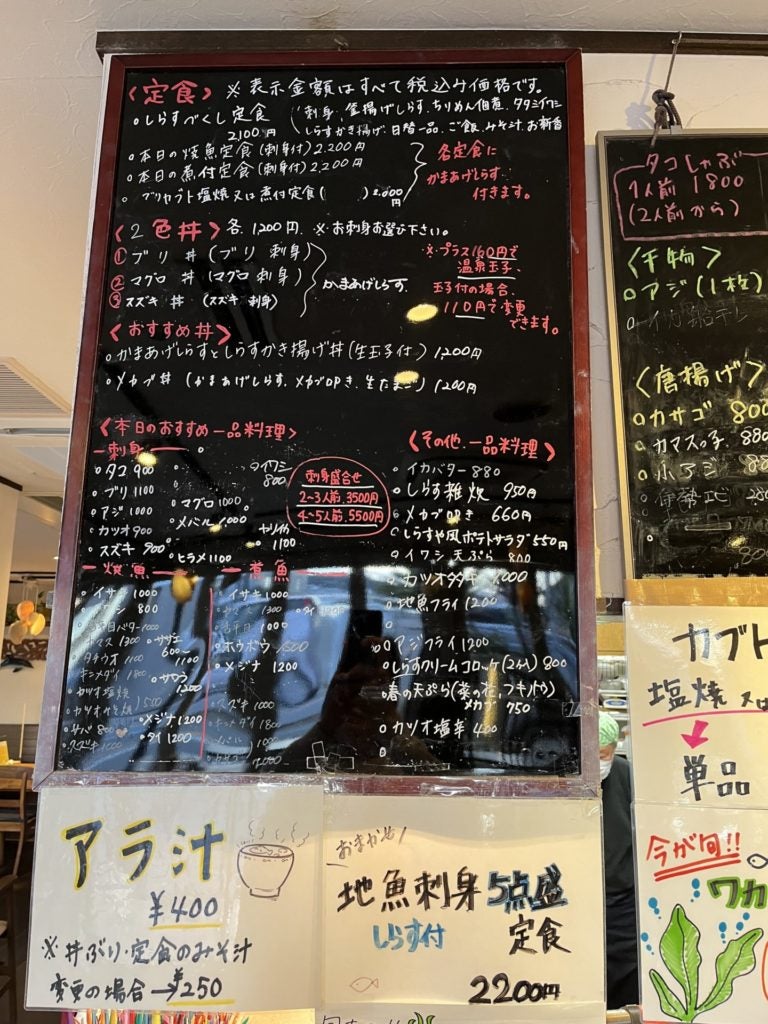 〈定食〉 ※表示金額はすべて税込み価格です。
○しらすづくし定食 2100円
(刺身、釜揚げしらす、ちりめん佃煮、タタミイワシ
しらすかき揚げ、日替一品、ご飯、みそ汁、お新香
○本日の焼魚定食(刺身付)2,200円
○本日の煮付定食(刺身付)2,200円
○ブリカブト塩焼又は煮付定食( )2,000円
各定食に
かまあげしらす
付きます。
〈2色丼〉各1,200円 ※お刺身お選び下さい。
①ブリ丼(ブリ刺身)
②マグロ丼(マグロ刺身)
③スズキ丼(スズキ刺身)
かまあげしらす
※プラス160円で
温泉玉子、
玉子付の場合、
110円で変更
できます。
〈おすすめ丼〉
○かまあげしらすとしらすかき揚げ丼(生玉子付)1200円
○メカブ丼(かまあげしらす、メカブ叩き、生たまご)1200円
〈本日のおすすめ一品料理〉
刺身
○タコ900
○ブリ1100
○アジ1000
○カツオ900
○スズキ900
○マグロ1000
○メバル1000
○ヒラメ1100
○イワシ800
○ヤリイカ1100
刺身盛合せ
2~3人前、3500円
4~5人前、5500円
焼魚
○イサキ1000
○イワシ800
○カマス1300
○タチウオ1100
○キンメダイ1800
○カツオ塩焼
○サバ800
○スズキ1000
○サザエ
600~
1100
○サワラ
1200
○メジナ1200
○タイ1200
煮魚
○イサキ1000
○タイ1200
○ホウボウ1500
○メジナ1200
○スズキ1000
○キンメダイ1800
○メバル1000
〈その他、一品料理〉
○イカバター880
○しらす雑炊950円
○メカブ叩き660円
○しらすや風ポテトサラダ550円
○イワシ天ぷら800
○カツオタタキ1,000
○地魚フライ1200
○アジフライ1200
○しらすクリームコロッケ(2ケ入)800
○春の天ぷら(菜の花、フキノトウ)
メカブ750
○カツオ塩辛400
タコしゃぶ
1人前 1800
(2人前から)
〈干物〉
○アジ(1枚)
○イカ一船干し
〈唐揚げ〉
○カサゴ800
○カマスっ子、880
○小アジ 80
○伊勢エビ 280
アラ汁
¥400
※丼ぶり・定食のみそ汁
変更の場合→¥250
おまかせ!
地魚刺身5点盛
しらす付 定食
2200円
カブト
塩焼 又は
単品
今が旬!!
ワカ